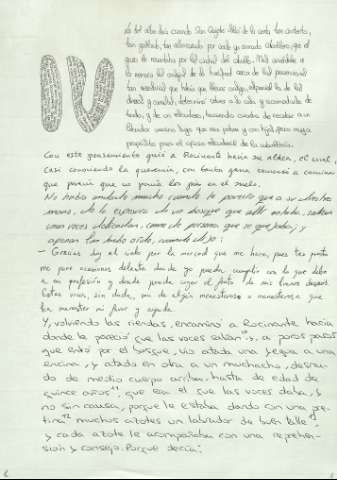 IV
La del alba sería cuando Don Quijote salió de la venta tan contento,
tan gallardo, tan alborozado por verse ya armado caballero, que el
gozo le reventaba por las cinchas del caballo. Mas viniéndole a
la memoria los consejos de su huésped cerca de las prevenciones
tan necesarias que había que llevar consigo, especial la de los
dineros y camisas, determinó volver a su casa y acomodarse de
todo, y de un escudero, haciendo cuenta de recebir a un
labrador vecino suyo que era pobre y con hijos, pero muy a
propósito para el oficio escuderil de la caballería.
Con este pensamiento guió a Rocinante hacia su aldea, el cual,
casi conociendo la querencia, con tanta gana comenzó a caminar
que parecía que no ponía los pies en el suelo.
No había andado mucho cuando le pareció que a su diestra
mano, de la espesura de un bosque que allí estaba, salían
unas voces delicadas, como de persona que se quejaba; y
apenas las hubo oído, cuando dijo:
- Gracias doy al cielo por la merced que me hace, pues tan presto
me pone ocasiones delante donde yo pueda cumplir con lo que debo
a mi profesión y donde pueda coger el fruto de mis buenos deseos.
Estas voces, sin duda, son de algún menesteroso o menesterosa que
ha menester mi favor y ayuda.
Y, volviendo las riendas, encaminó a Rocinante hacia
donde le pareció que las voces salían, a pocos pasos
que entró por el bosque, vio atada una yegua a una
encina, y atado en otra a un muchacho, desnu-
do de medio cuerpo arriba, hasta de edad de
quince años, que era el que las voces daba, y
no sin causa, porque le estaba dando con una pre-
tina muchos azotes un labrador de buen talle,
y cada azote le acompañaba con una reprehen-
sión y consejo. Porque decía: